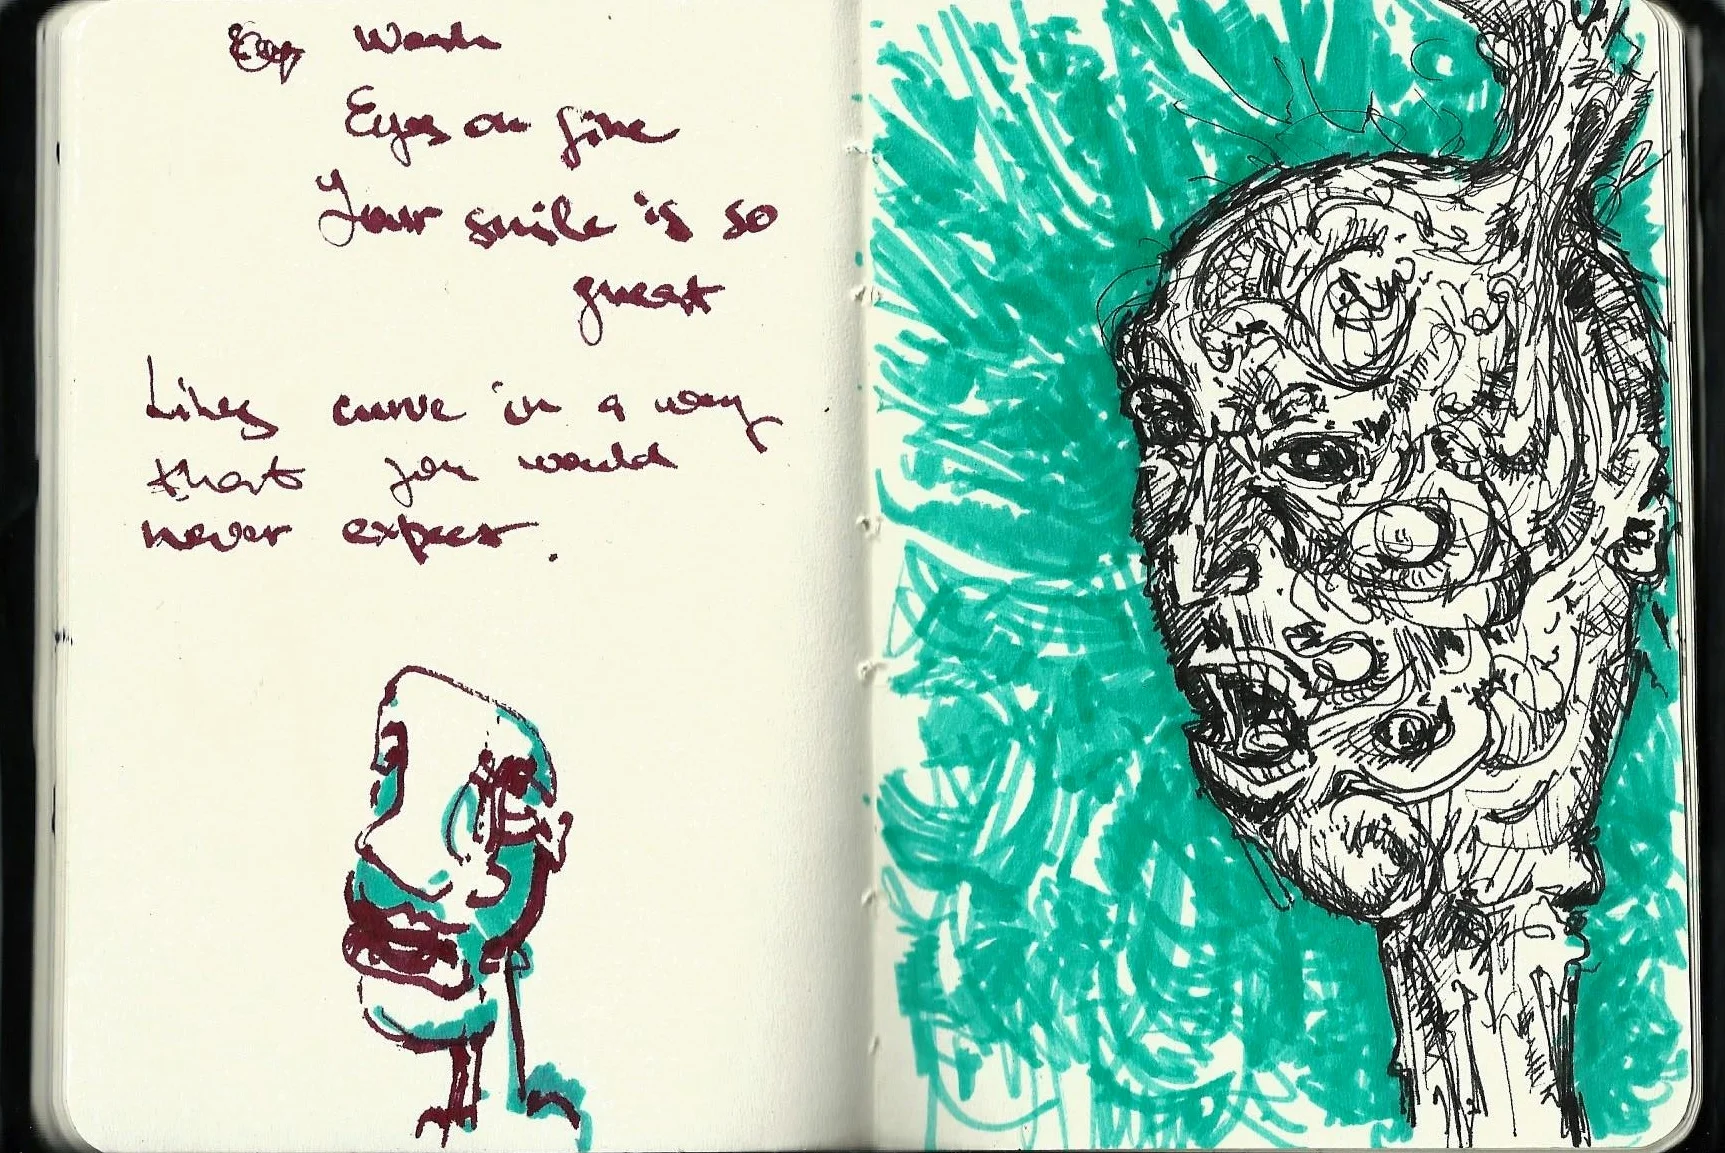 Eyes on fire
Your smile is so
great
Lines curve in a way
that you would
never expect .